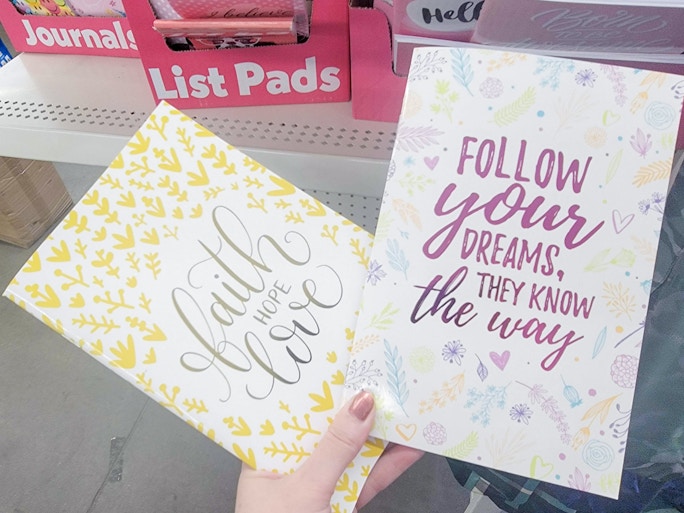 Journals
List Pads
I believe
Hello
faith
HOPE
love
FOLLOW
your
DREAMS,
THEY KNOW
the way